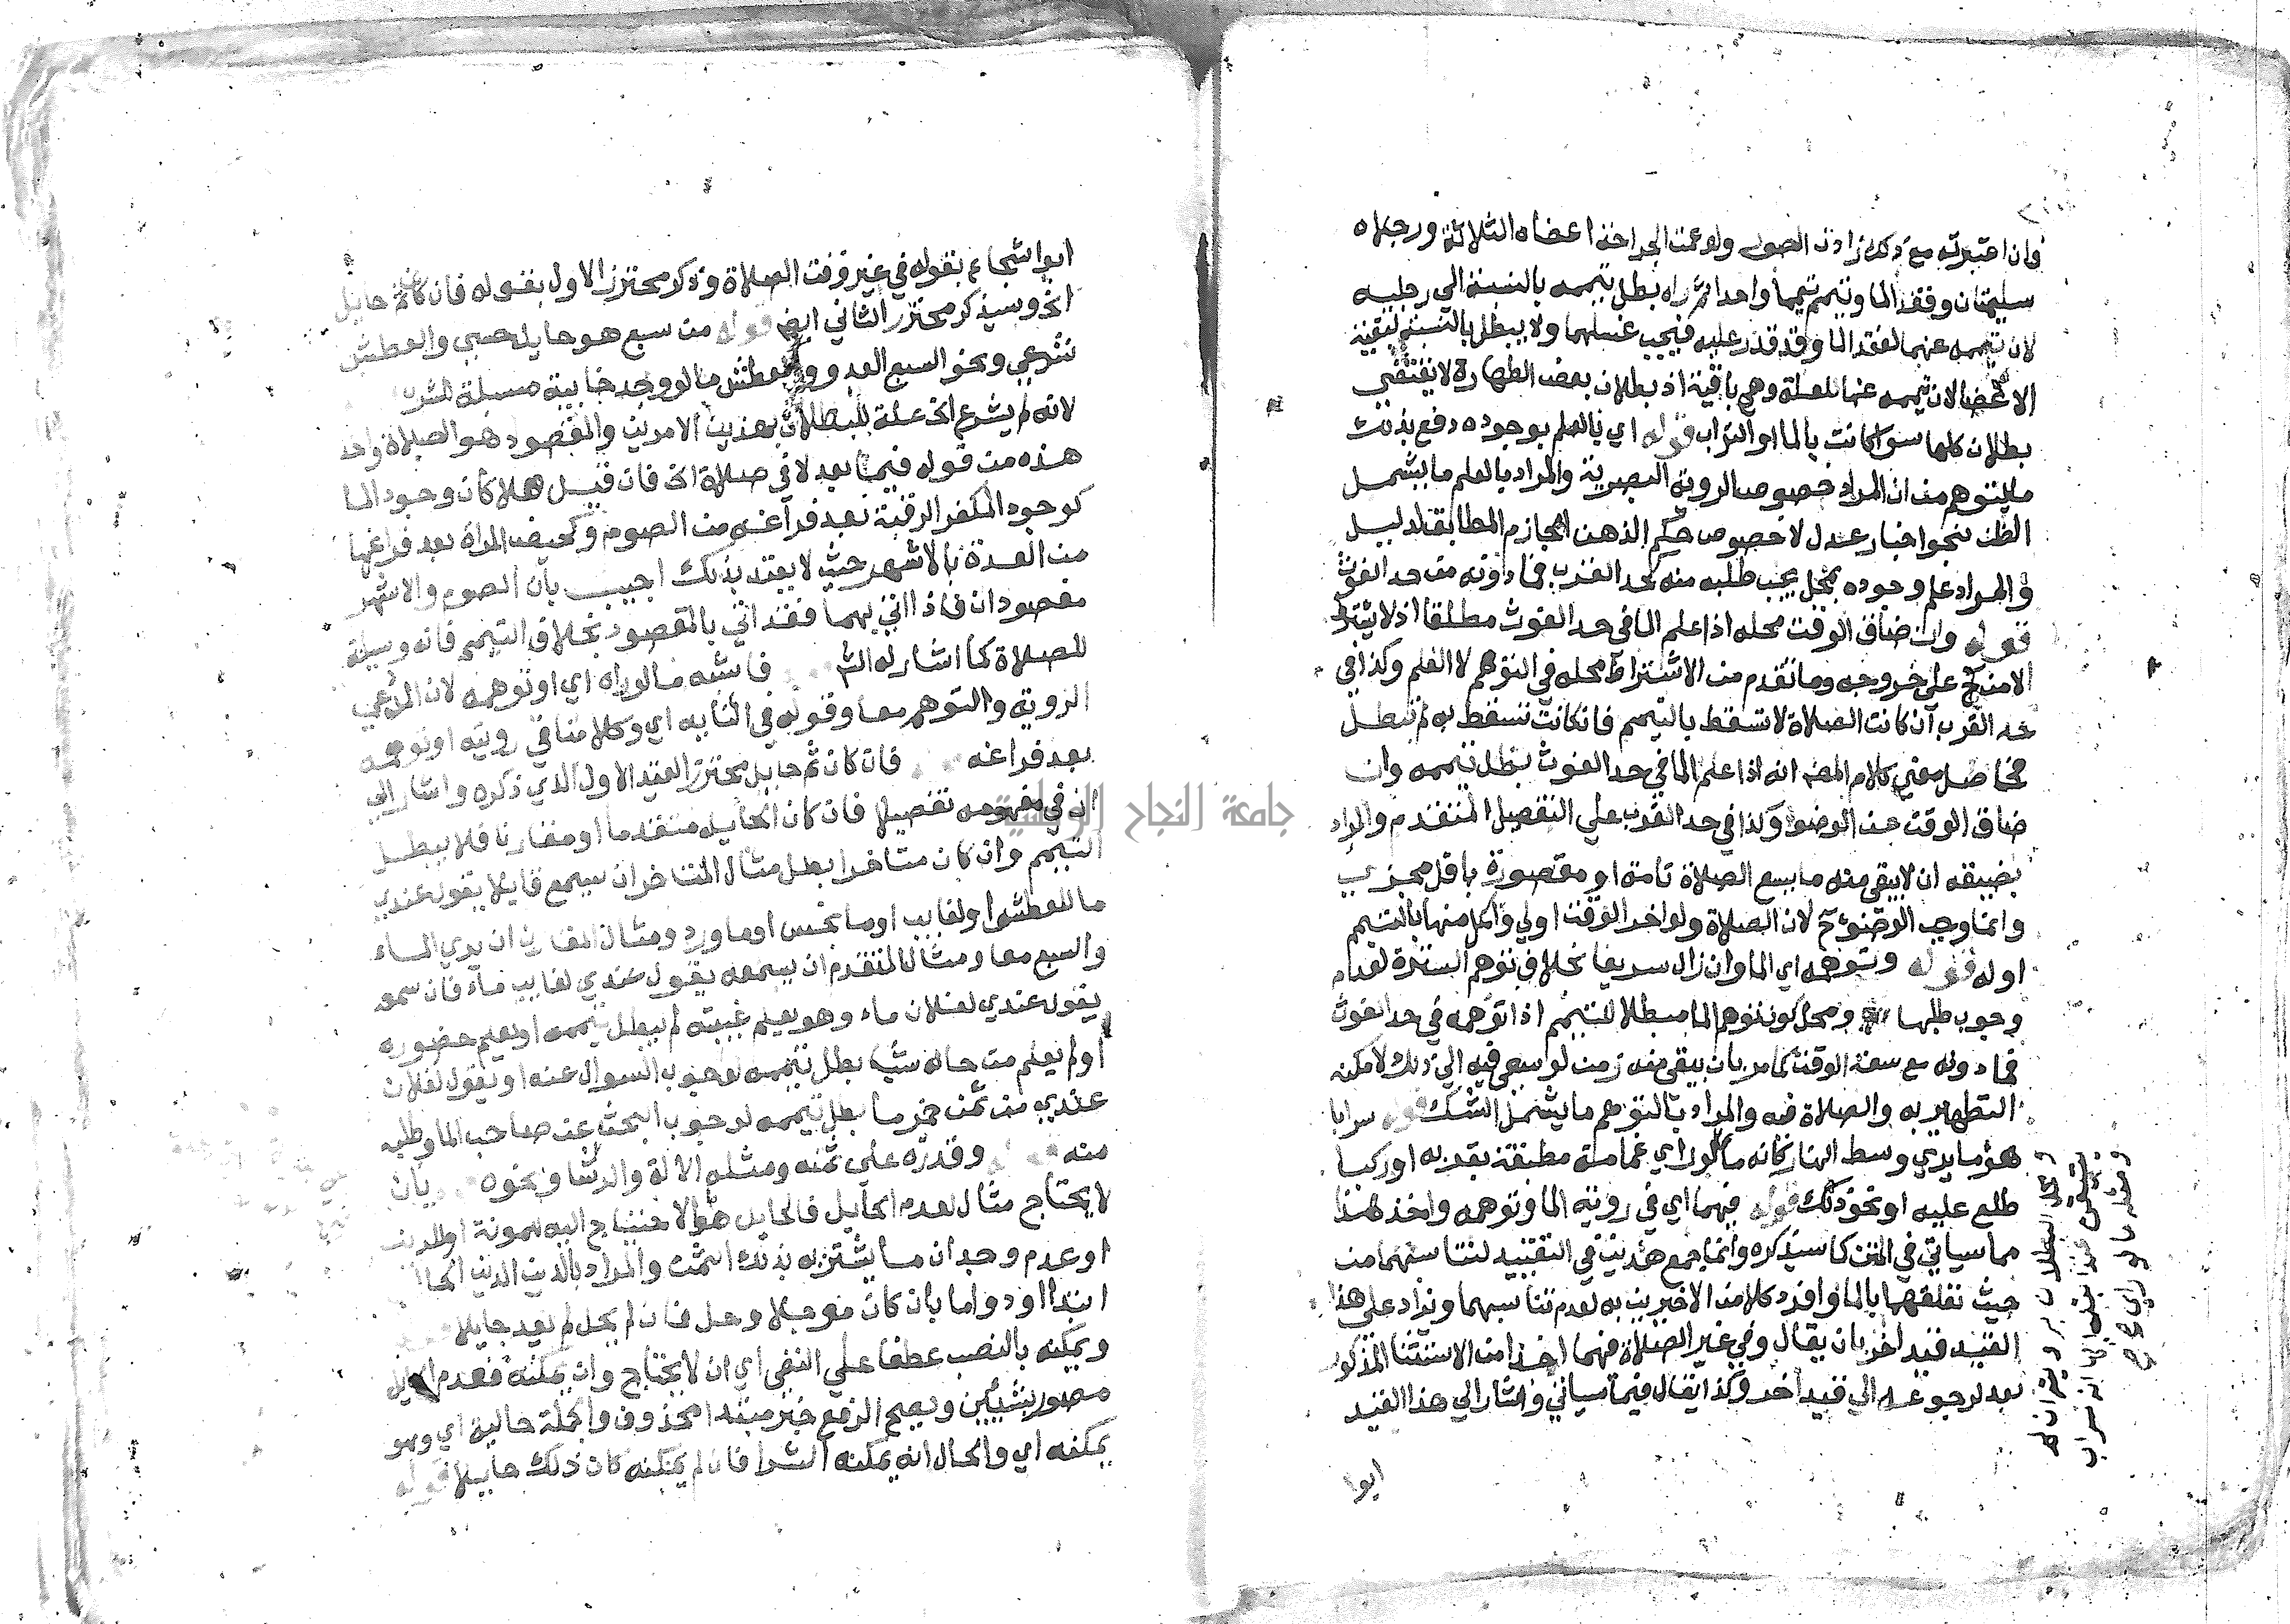 وان اعتبرته مع ذلك زادت الصور ولو عمت الجراحة اعضاه الثلاثة ورجلاه
سليمتان وفقد الما وتيمم تيمما واحدا ثم راه بطل تيممه بالنسبة الي رجليه
لان تيممه عنهما لفقد الما وقد قدر عليه فيجب غسلهما ولا يبطل بالنسبة لبقية
الاعضا لان تيممه عنها للعلة وهي باقية اذ بطلان بعض الطهارة لا يقتضي
بطلان كلها سوا كانت بالما او التراب قوله اي بالعلم بوجوده دفع بذلك
ما يتوهم من ان المراد خصوص الروية البصرية والمراد بالعلم ما يشمل
الظن بنحو اخبار عدل لا خصوص حكم الذهن الجازم المطابق لدليل
والمراد علم وجوده بمحل يجب طلبه منه كحد القرب فما دونه من حد الغوث
قوله وان ضاق الوقت محله اذا علم الما في حد الغوث مطلقا اذ لا يشترط
الامن ح علي خروجه وما تقدم من الاشتراط محله في التوهم لا العلم وكذا في
حد القرب ان كانت الصلاة لا تسقط بالتيمم فان كانت تسقط به لم تبطل
فحاصل معني كلام المص انه اذا علم الما في حد الغوث بطل تيممه وان
ضاق الوقت عن الوضو وكذا في حد القرب علي التفصيل المتقدم والمراد
بضيقه ان لا يبقي منه ما يسع الصلاة تامة او مقصورة باقل مجزي
وانما وجب الوضوء ح لان الصلاة ولو اخر الوقت اولي واكمل منها بالتيمم
اوله قوله وتوهمه اي الما وان زال سريعا بخلاف توهم السترة لعدم
وجوب طلبها ومحل كون توهم الما مبطلا للتيمم اذا توهمه في حد الغوث
فما دونه مع سعة الوقت كما مر بان يبقي منه زمن لو سعي فيه الي ذلك لامكنه
التطهير به والصلاة فيه والمراد بالتوهم ما يشمل الشك قوله سرابا
هو ما يري وسط النهار كانه ما قوله اي غمامة مطبقة بقربه او ركب
طلع عليه او نحو ذلك قوله فيهما اي في روية الما وتوهمه واخذ هذا
مما سياتي في المتن كما سيذكره وانما جمع هذين في التقييد لتناسبهما من
حيث تعلقهما بالما وافرد كلا من الاخيرين به لعدم تناسبهما ويزاد علي هذا
القيد قيد اخر بان يقال وفي غير الصلاة فيهما اخذا من الاستثنا المذكور
بعد لرجوعه الي قيد اخر وكذا يقال فيما سياتي واشار الي هذا القيد
ابوا
ابوا شجاع بقوله في غير وقت الصلاة وذكر محترز الاول بقوله فان كان ثم حايل
الخ وسيذكر محترز الثاني ايضا قوله من سبع هو حايل حسي والعطش
شرعي ونحو السبع العدو والعطش ما لو وجد خابية مسبلة للشرب
لانه لم يشرع الخ علة للبطلان بهذين الامرين والمقصود هو الصلاة واحترز
هذه من قوله فيما بعد لا في صلاة الخ فان قيل هلا كان وجود الما
كوجود المكفر الرقبة بعد فراغه من الصوم وكحيض المراة بعد فراغها
من العدة بالاشهر حيث لا يعتد بذلك اجيب بان الصوم والاشهر
مقصودان فاذا اتي بهما فقد اتي بالمقصود بخلاف التيمم فانه وسيلة
للصلاة كما اشار له الش فاشبه ما لو راه اي او توهمه لان المدعي
الروية والتوهم معا وقوله في اثنايه اي وكلامنا في رويته او توهمه
بعد فراغه فان كان ثم حايل محترز القيد الاول الذي ذكره واشار الي
ان في مفهومه تفصيلا فان كان الحايل متقدما او مقارنا فلا يبطل
التيمم وان كان متاخرا بطل مثال المتاخر ان يسمع قايلا يقول عندي
ما للعطش او لغايب او ما نجس او ما ورد ومثال المقارن ان يري الماء
والسبع معا ومثال المتقدم ان يسمعه يقول عندي لغايب ماء فان سمعه
يقول عندي لفلان ماء وهو يعلم غيبته لم يبطل تيممه او يعلم حضوره
او لم يعلم من حاله شيا بطل تيممه لوجوب السوال عنه او يقول لفلان
عندي من ثمن خمر ما بطل تيممه لوجوب البحث عن صاحب الما وطلبه
منه وقدره علي ثمنه ومثله الالة والرشا ونحوه بان
لا يحتاج مثال لعدم الحايل فالحايل هو الاحتياج اليه لمونة او لدين
او عدم وجدان ما يشتريه بذلك الثمن والمراد بالدين الدين الحال
ابتدا او دواما بان كان موجلا وحل فان لم يحل لم يعد حايلا
ويمكنه بالنصب عطفا علي النفي اي ان لا يحتاج وان يمكنه فعدم الحايل
مصور بشييين ويصح الرفع خبر مبتدا محذوف والجملة حالية اي وهو
يمكنه اي والحال انه يمكنه الشرا فان لم يمكنه كان ذلك حايلا قوله
جامعة النجاح الوطنية